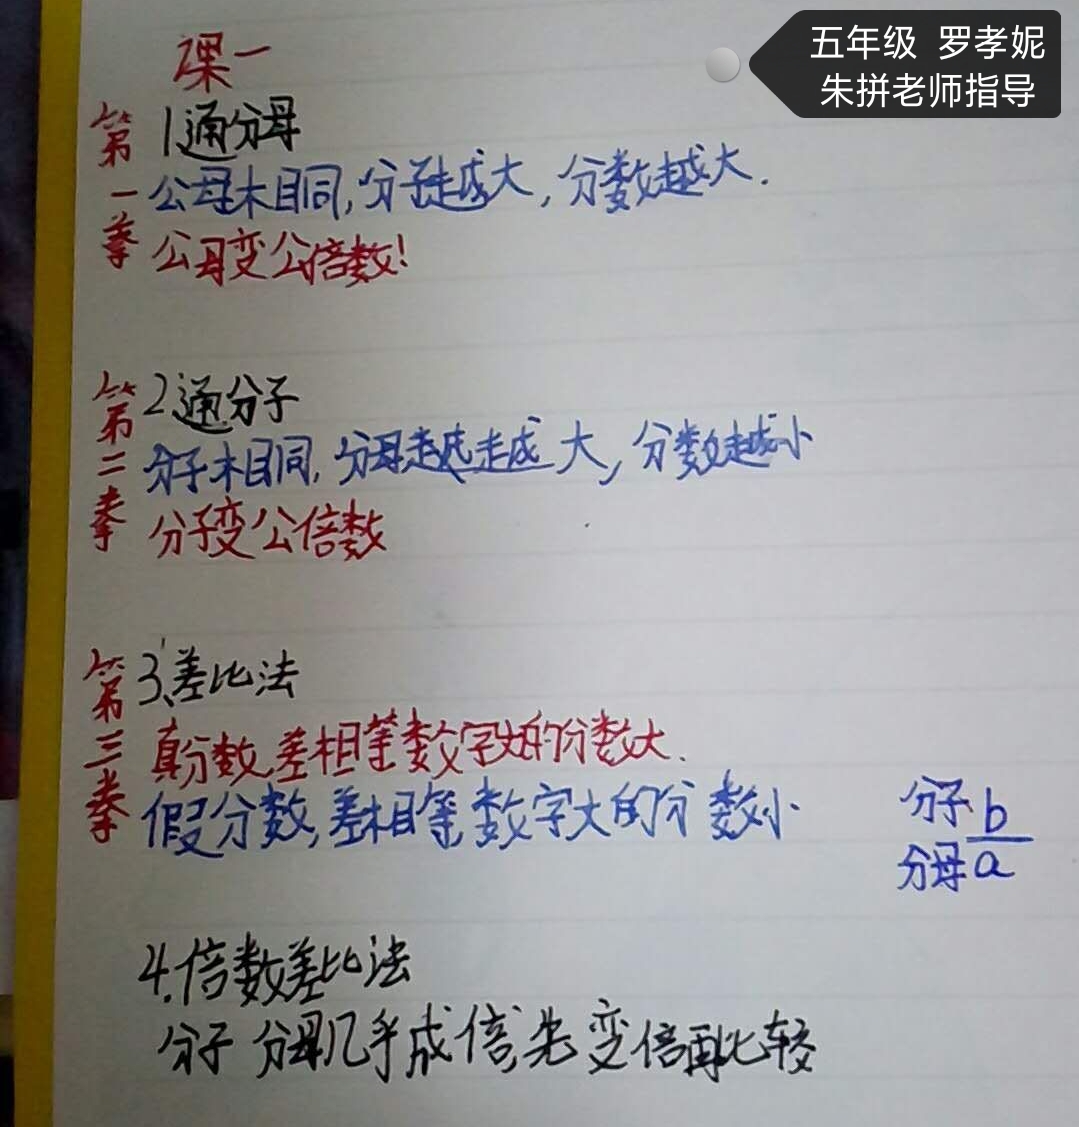 五年级 罗孝妮
朱拼老师指导
课一
第一拳
1通分母
公母相同,分子越大,分数越大.
公母变公倍数!
第二拳
2.通分子
分子相同,分母越越大,分数越小
分子变公倍数
第三拳
3、差比法
真分数,差相等数字大的分数大.
假分数,差相等,数字大的分数小
分子 b
分母 a
4.倍数差比法
分子 分母几乎成倍,先变倍再比较